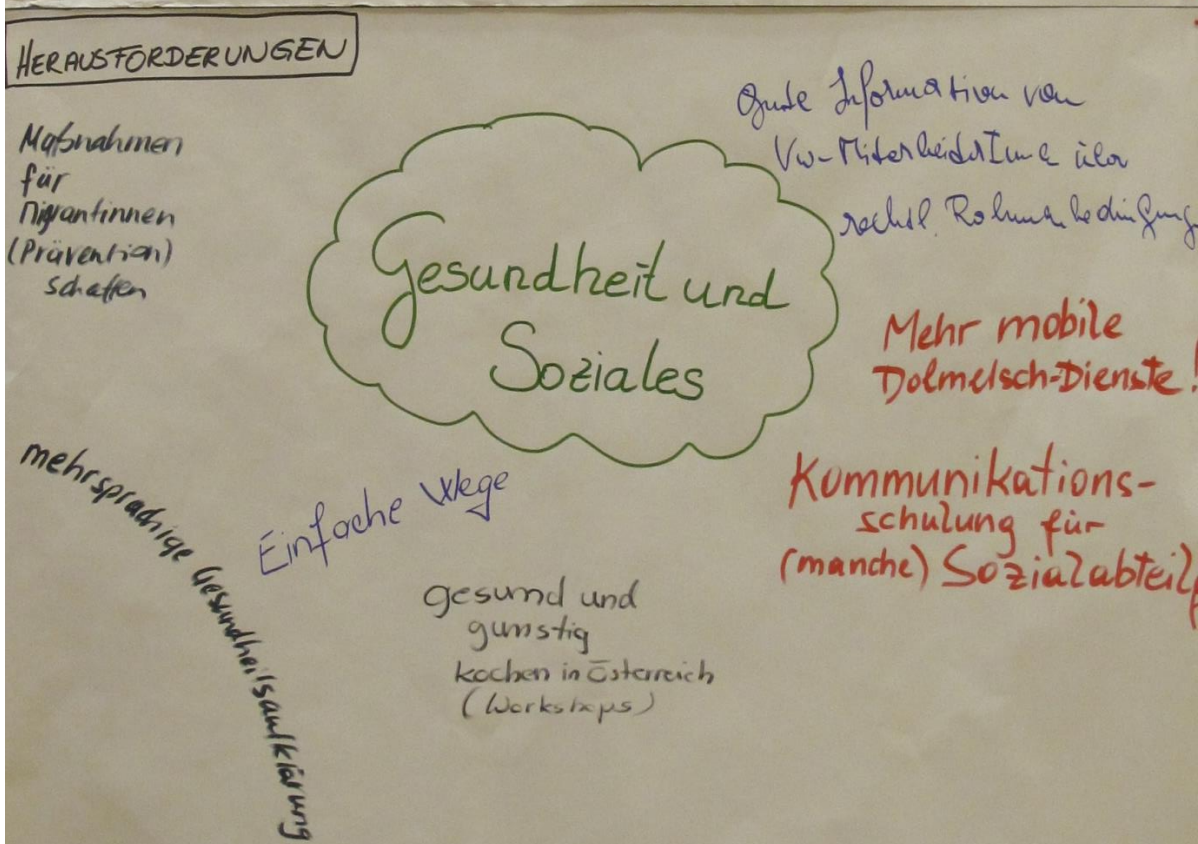 HERAUSFORDERUNGEN
Maßnahmen
für
Migrantinnen
(Prävention)
schaffen
Gesundheit und
Soziales
Gute Information von
Vw-MitarbeiterInnen über
rechtl. Rahmenbedingung
Mehr mobile
Dolmetsch-Dienste!
Kommunikations-
schulung für
(manche) Sozialabteil
mehrsprachige Gesundheitsaufklärung
Einfache Wege
gesund und
gunstig
kochen in Österreich
(Workshops)